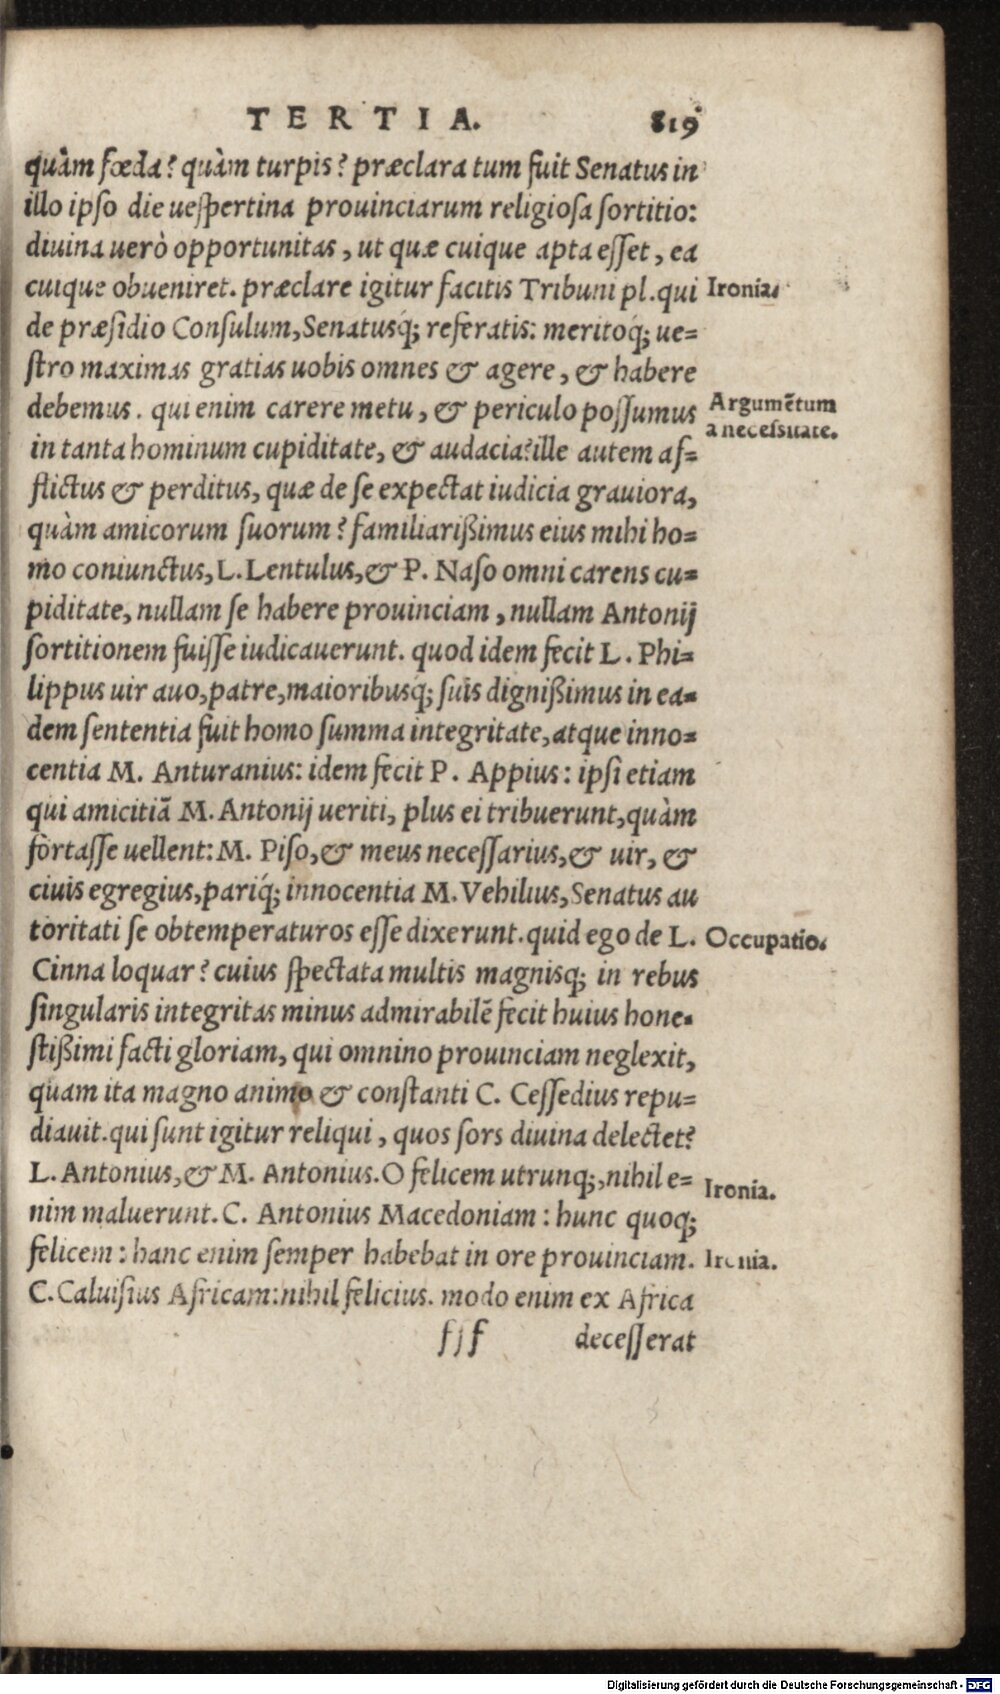 TERTIA. 819
quàm fœda? quàm turpis? præclara tum fuit Senatus in
illo ipso die uespertina prouinciarum religiosa sortitio:
diuina uerò opportunitas, ut quæ cuique apta esset, ea
cuique obueniret. præclare igitur facitis Tribuni pl. qui
Ironia.
de præsidio Consulum, Senatusq́; referatis: meritoq́; ue=
stro maximas gratias uobis omnes & agere, & habere
debemus. qui enim carere metu, & periculo possumus
Argumētum
a necessitate.
in tanta hominum cupiditate, & audacia? ille autem af=
flictus & perditus, quæ de se expectat iudicia grauiora,
quàm amicorum suorum? familiarißimus eius mihi ho=
mo coniunctus, L. Lentulus, & P. Naso omni carens cu=
piditate, nullam se habere prouinciam, nullam Antonij
sortitionem fuisse iudicauerunt. quod idem fecit L. Phi=
lippus uir auo, patre, maioribusq́; suis dignißimus in ea=
dem sententia fuit homo summa integritate, atque inno=
centia M. Anturanius: idem fecit P. Appius: ipsi etiam
qui amicitiā M. Antonij ueriti, plus ei tribuerunt, quàm
fortasse uellent: M. Piso, & meus necessarius, & uir, &
ciuis egregius, pariq́; innocentia M. Vehilius, Senatus au
toritati se obtemperaturos esse dixerunt. quid ego de L.
Occupatio.
Cinna loquar? cuius spectata multis magnisq; in rebus
singularis integritas minus admirabilē fecit huius hone=
stißimi facti gloriam, qui omnino prouinciam neglexit,
quam ita magno animo & constanti C. Cessedius repu=
diauit. qui sunt igitur reliqui, quos sors diuina delectet?
L. Antonius, & M. Antonius. O felicem utrunq;, nihil e=
Ironia.
nim maluerunt. C. Antonius Macedoniam: hunc quoq;
felicem: hanc enim semper habebat in ore prouinciam.
Ironia.
C. Caluisius Africam: nihil felicius. modo enim ex Africa
fff decesserat
Digitalisierung gefördert durch die Deutsche Forschungsgemeinschaft - DFG